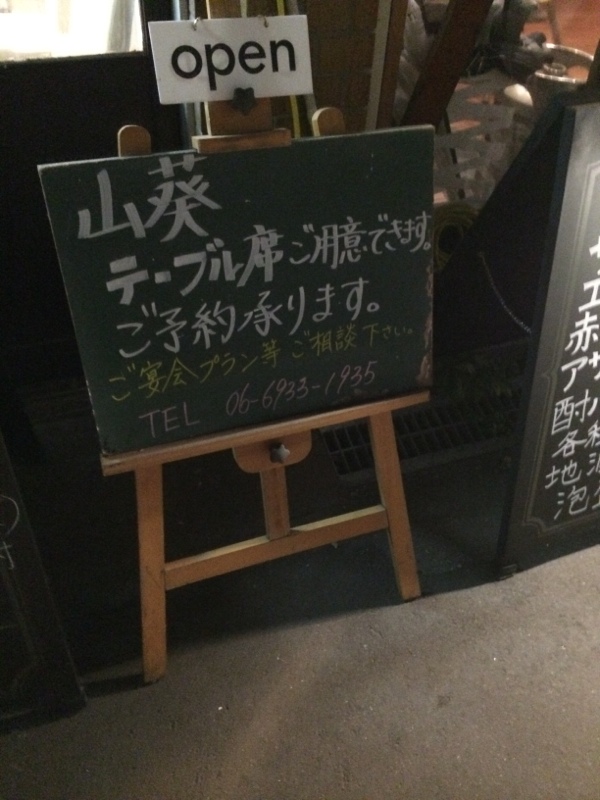 open
山葵
テーブル席ご用意できます。
ご予約承ります。
ご宴会プラン等ご相談下さい。
TEL 06-6933-1935
酎各地泡